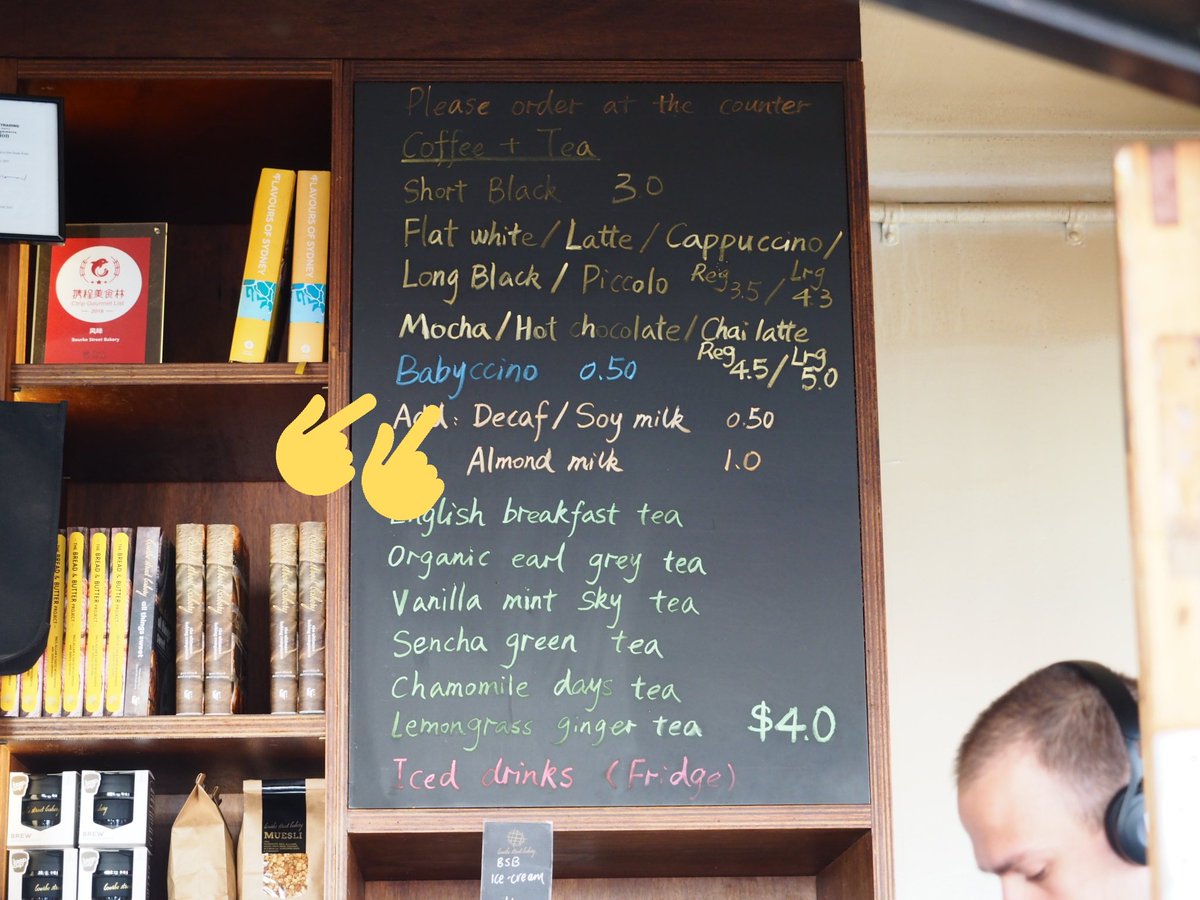 Please order at the counter
Coffee + Tea
Short Black 3.0
Flat white / Latte / Cappuccino /
Long Black / Piccolo Reg 3.5 / Lrg 4.3
Mocha / Hot chocolate / Chai latte
Reg 4.5 / Lrg 5.0
Babyccino 0.50
Add: Decaf / Soy milk 0.50
Almond milk 1.0
English breakfast tea
Organic earl grey tea
Vanilla mint sky tea
Sencha green tea
Chamomile days tea
Lemongrass ginger tea $4.0
Iced drinks (Fridge)
FLAVOURS OF SYDNEY
FLAVOURS OF SYDNEY
携程美食林
Ctrip Gourmet List
2018
Bourke Street Bakery
THE BREAD & BUTTER PROJECT
THE BREAD & BUTTER PROJECT
THE BREAD & BUTTER PROJECT
THE BREAD & BUTTER PROJECT
all things sweet
BREW
BREW
MUESLI
BSB
ICE-CREAM